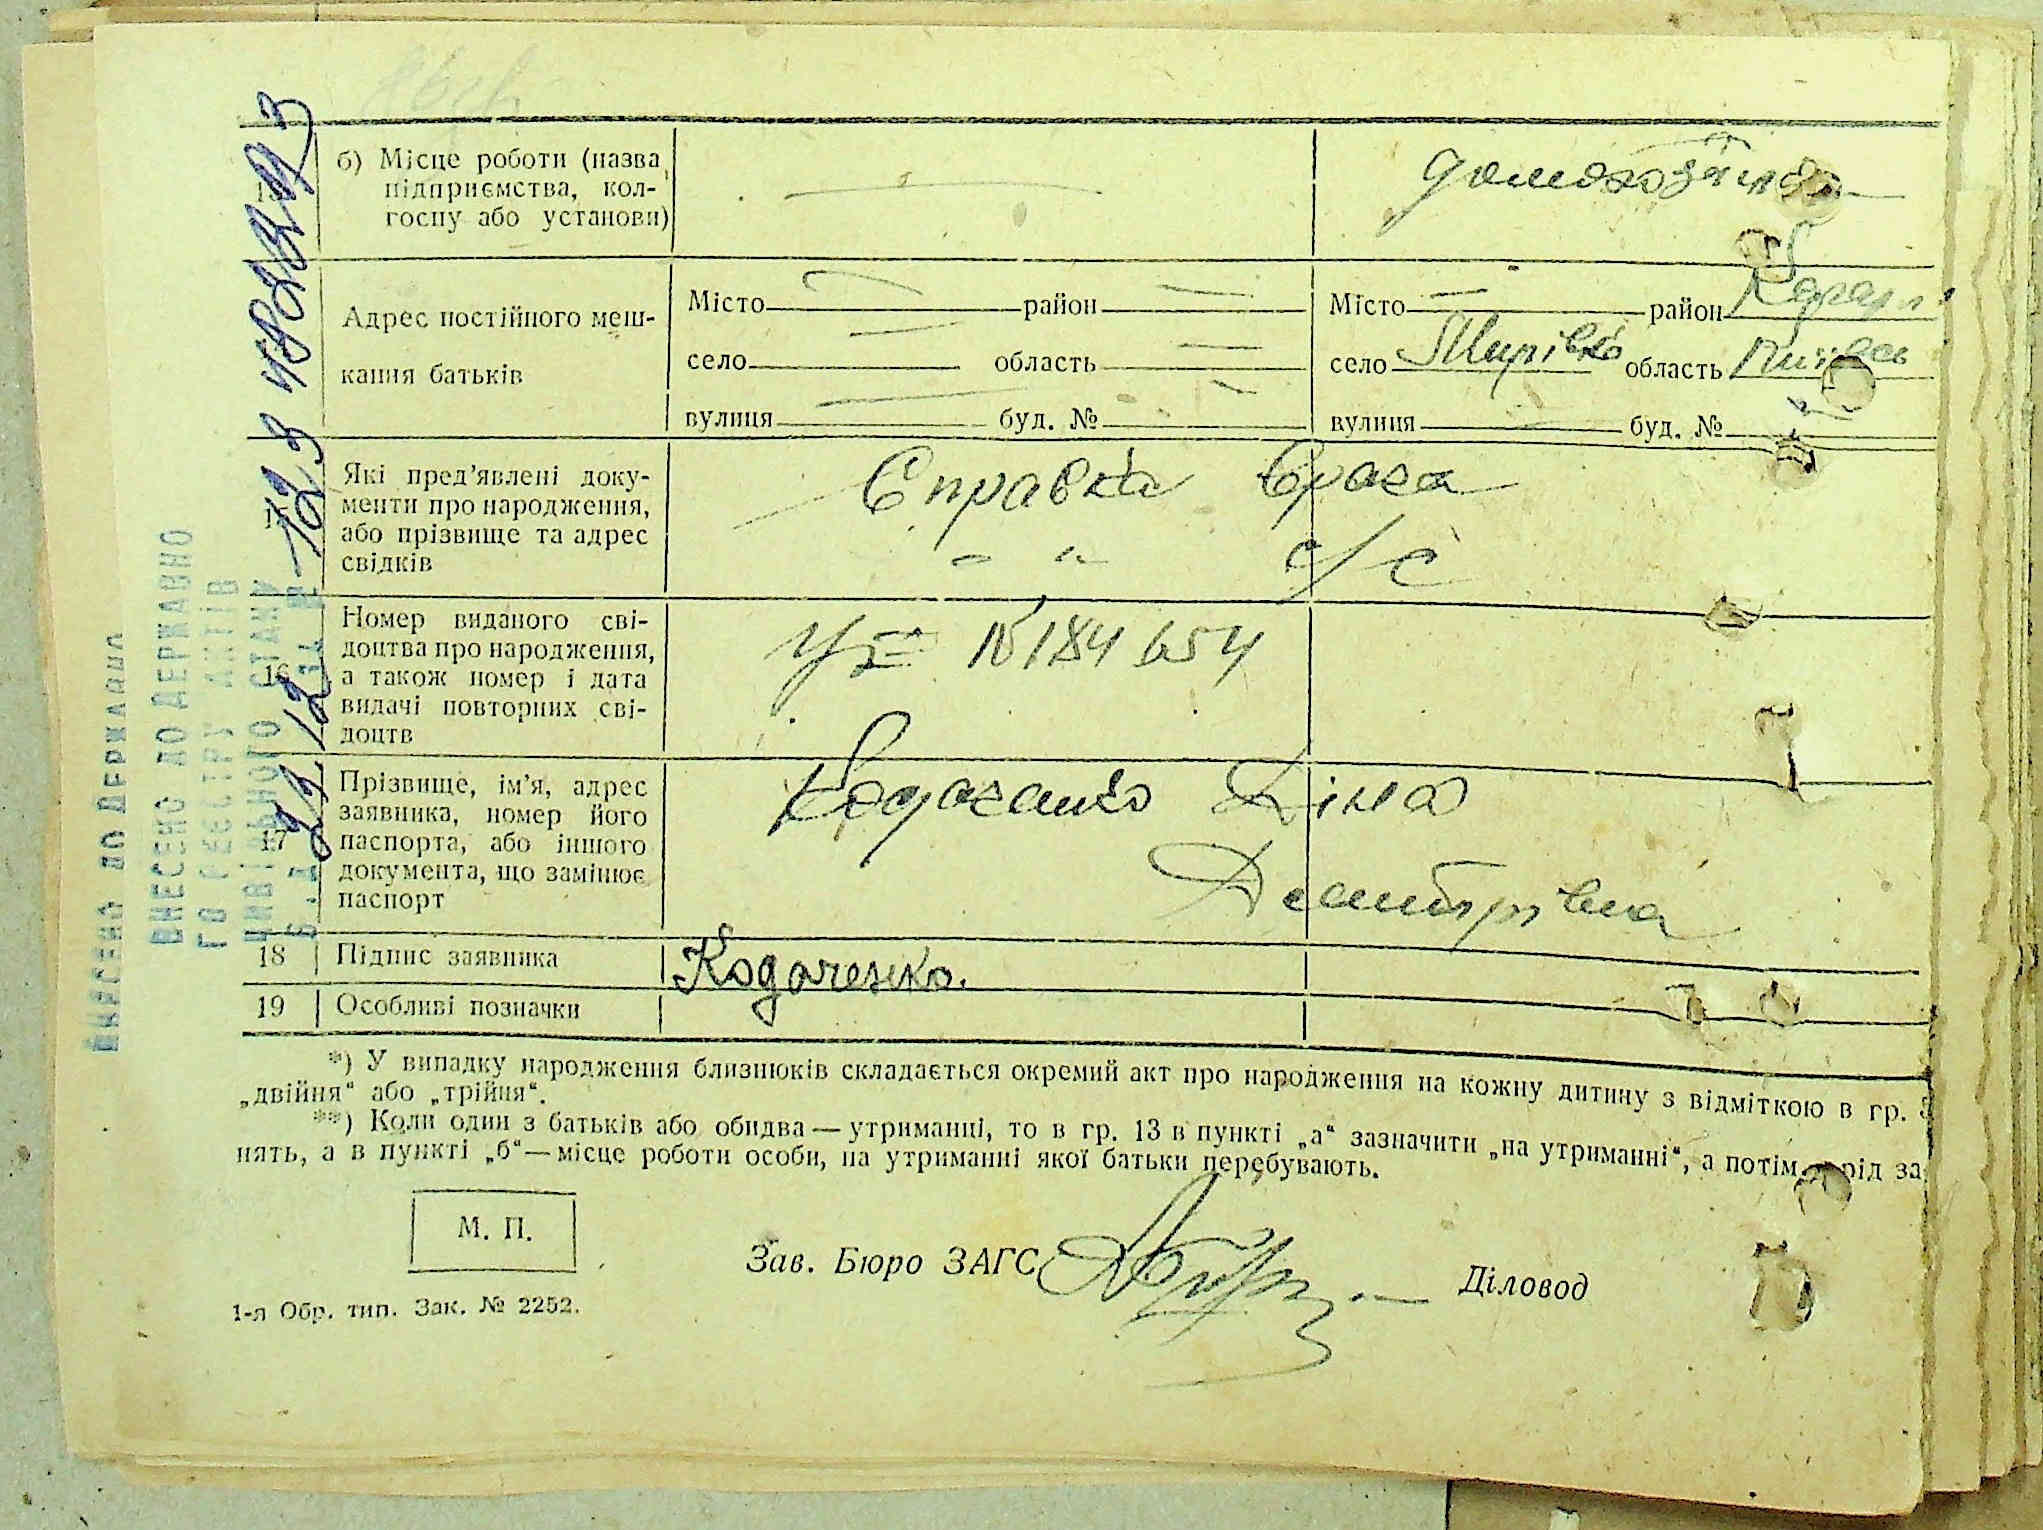 б) Місце роботи (назва
підприємства, кол-
госпу або установи)
домохазяйка
Адрес постійного меш-
кання батьків
Місто — район —
село — область —
вулиця — буд. № —
Місто — район Кагарл.
село Мирівка область Київськ
вулиця — буд. №
Які пред’явлені доку-
менти про народження,
або прізвище та адрес
свідків
Справка врача
— " — с/с
16
Номер виданого сві-
доцтва про народження,
а також номер і дата
видачі повторних сві-
доцтв
184654
17
Прізвище, ім’я, адрес
заявника, номер його
паспорта, або іншого
документа, що замінює
паспорт
Кодаченко Діна
Дмитрівна
18 Підпис заявника
Кодаченко.
19 Особливі позначки
*) У випадку народження близнюків складається окремий акт про народження на кожну дитину з відміткою в гр. 3
„двійня“ або „трійня“.
**) Коли один з батьків або обидва — утриманці, то в гр. 13 в пункті „а“ зазначити „на утриманні“, а потім рід за
нять, а в пункті „б“ — місце роботи особи, на утриманні якої батьки перебувають.
М. П.
Зав. Бюро ЗАГС
Діловод
1-я Обр. тип. Зак. № 2252.
ВНЕСЕНО ДО ДЕРЖАВНО
ГО РЕЄСТРУ АКТІВ
ЦИВІЛЬНОГО СТАНУ